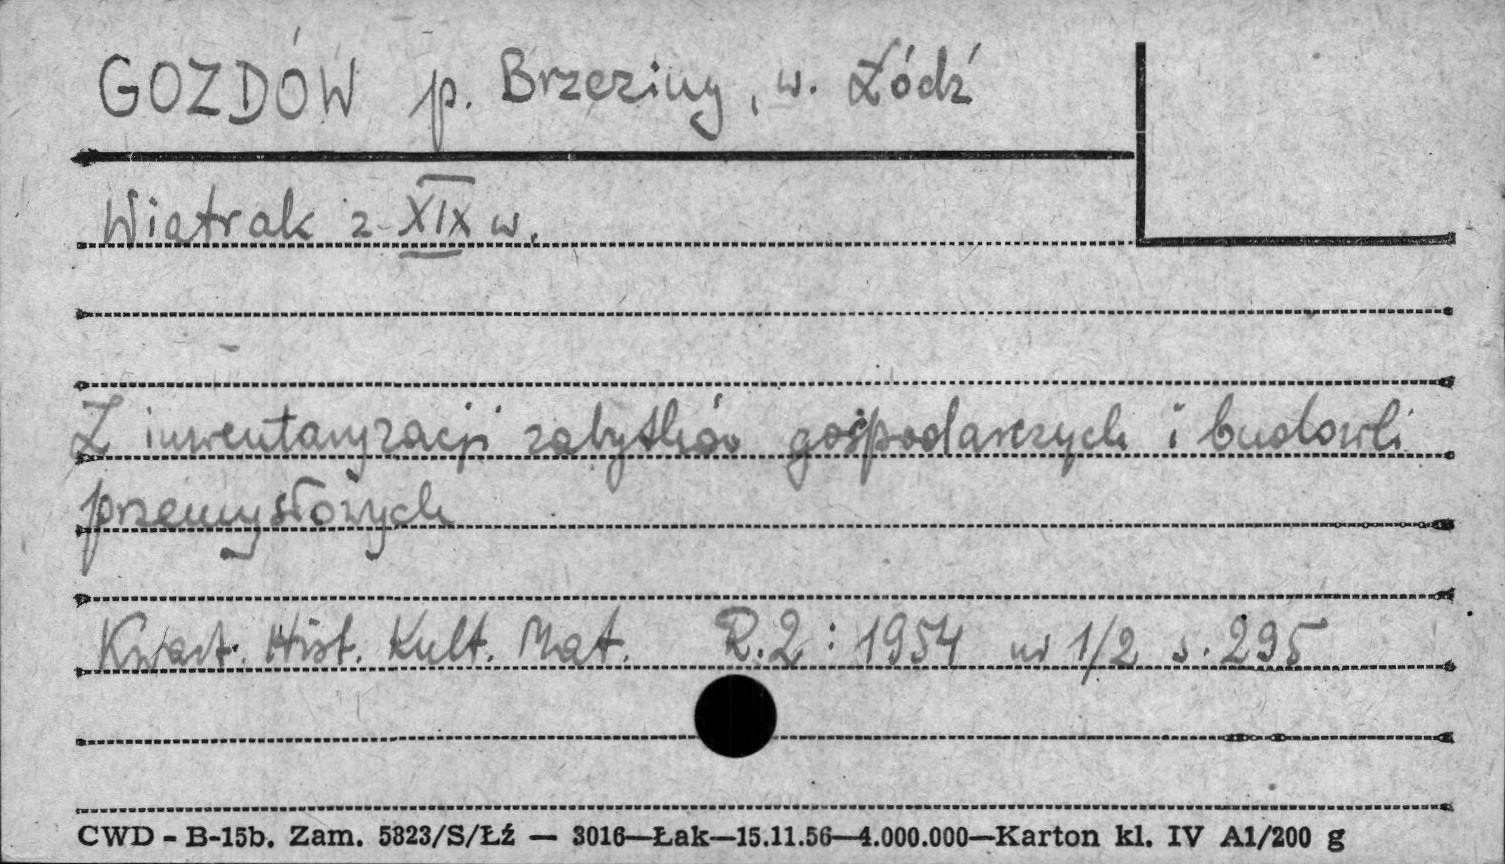 GOZDÓW p. Brzeziny, w. Łódź
Wiatrak z XIX w.
Z inwentaryzacji zabytków gospodarczych i budowli
przemysłowych
Kwart. Hist. Kult. Mat. R.2: 1954 nr 1/2 s. 295
CWD - B-15b. Zam. 5823/S/Łź — 3016—Łak—15.11.56—4.000.000—Karton kl. IV A1/200 g